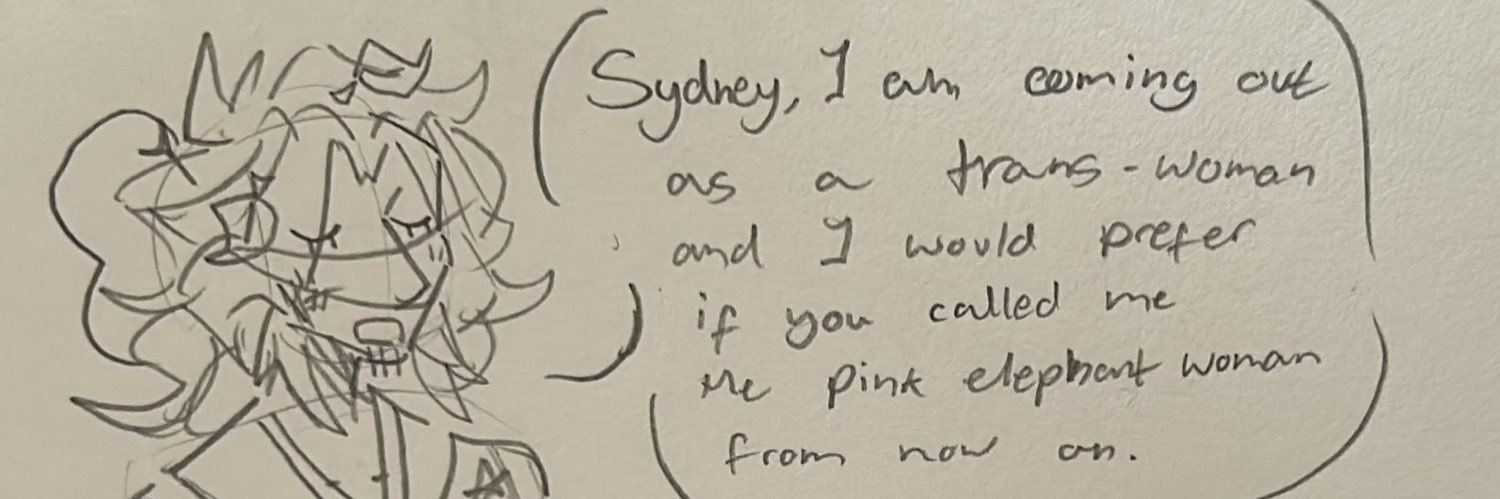 Sydney, I am coming out
as a trans-woman
and I would prefer
if you called me
the pink elephant woman
from now on.